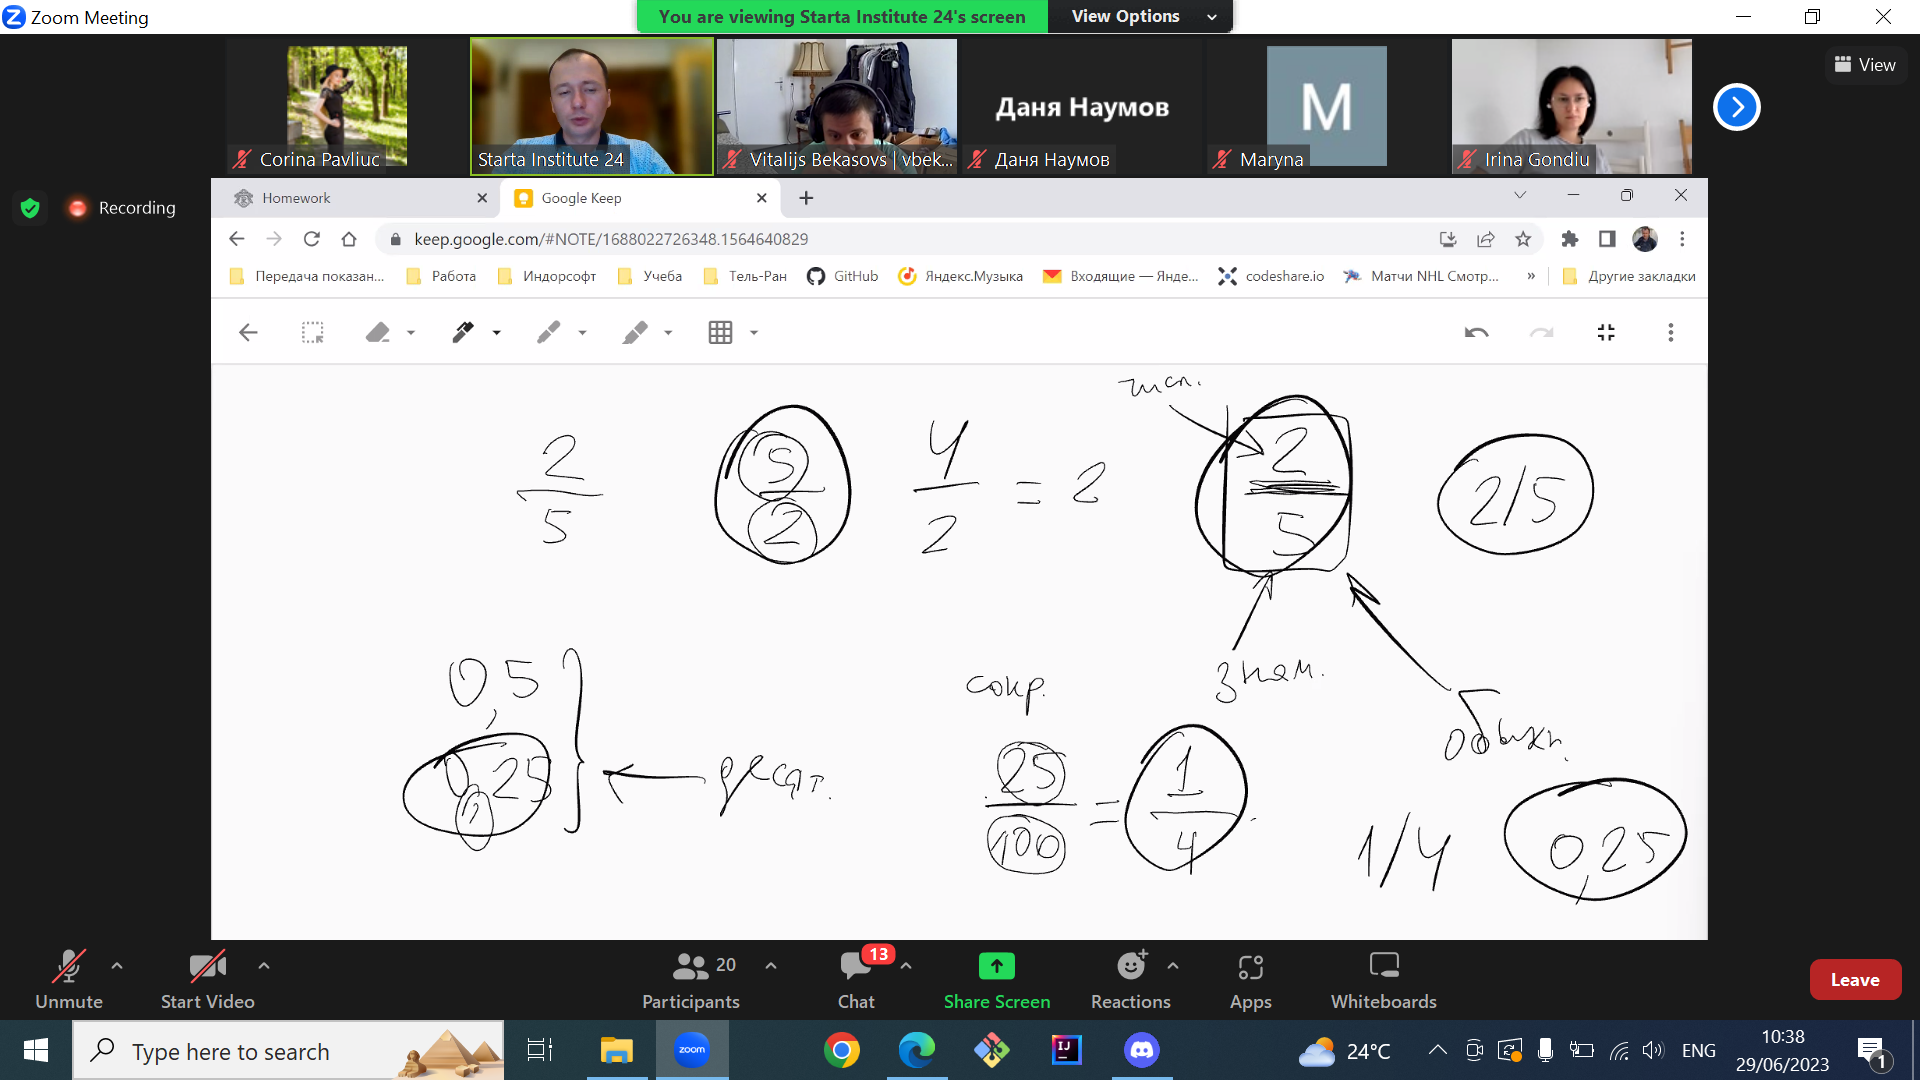 Zoom Meeting
You are viewing Starta Institute 24's screen
View Options
View
Corina Pavliuc
Starta Institute 24
Vitalijs Bekasovs | vbek...
Даня Наумов
Даня Наумов
M
Maryna
Irina Gondiu
Recording
Homework
Google Keep
keep.google.com/#NOTE/1688022726348.1564640829
Передача показан...
Работа
Индорсофт
Учеба
Тель-Ран
GitHub
Яндекс.Музыка
Входящие — Янде...
codeshare.io
Матчи NHL Смотр...
»
Другие закладки
числ.
2
5
5
2
4
2
= 2
2
5
2/5
знам.
обыкн.
0,5
0,25
десят.
сокр.
25
100
=
1
4
1/4
0,25
Unmute
Start Video
20
Participants
13
Chat
Share Screen
Reactions
Apps
Whiteboards
Leave
Type here to search
zoom
IJ
24°C
ENG
10:38
29/06/2023
1